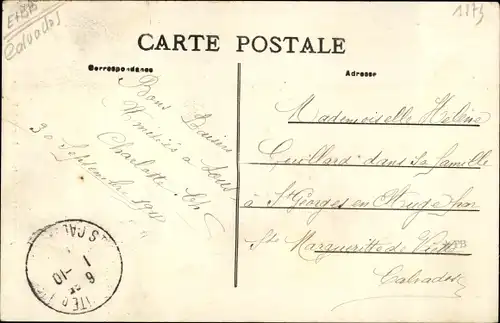 E+BB
Calvados
1275
CARTE POSTALE
Correspondance
Adresse
Bons Baisers
& amitiés à tous
Charlotte Ch
30 Septembre 1910
Mademoiselle Hélène
Guillard dans sa famille
à St Georges en Auge par
Ste Marguerite de Viette
Calvados